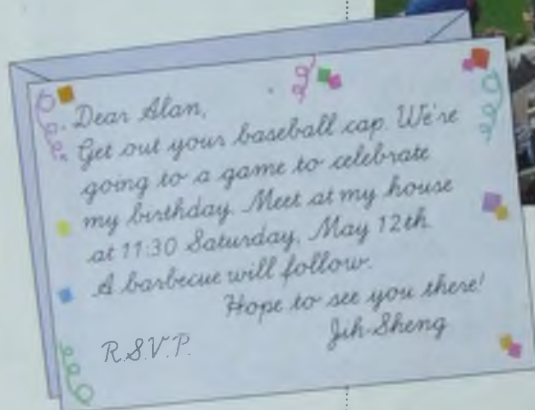 Dear Alan,
Get out your baseball cap. We're
going to a game to celebrate
my birthday. Meet at my house
at 11:30 Saturday, May 12th.
A barbecue will follow.
Hope to see you there!
Jih-Sheng
R.S.V.P.